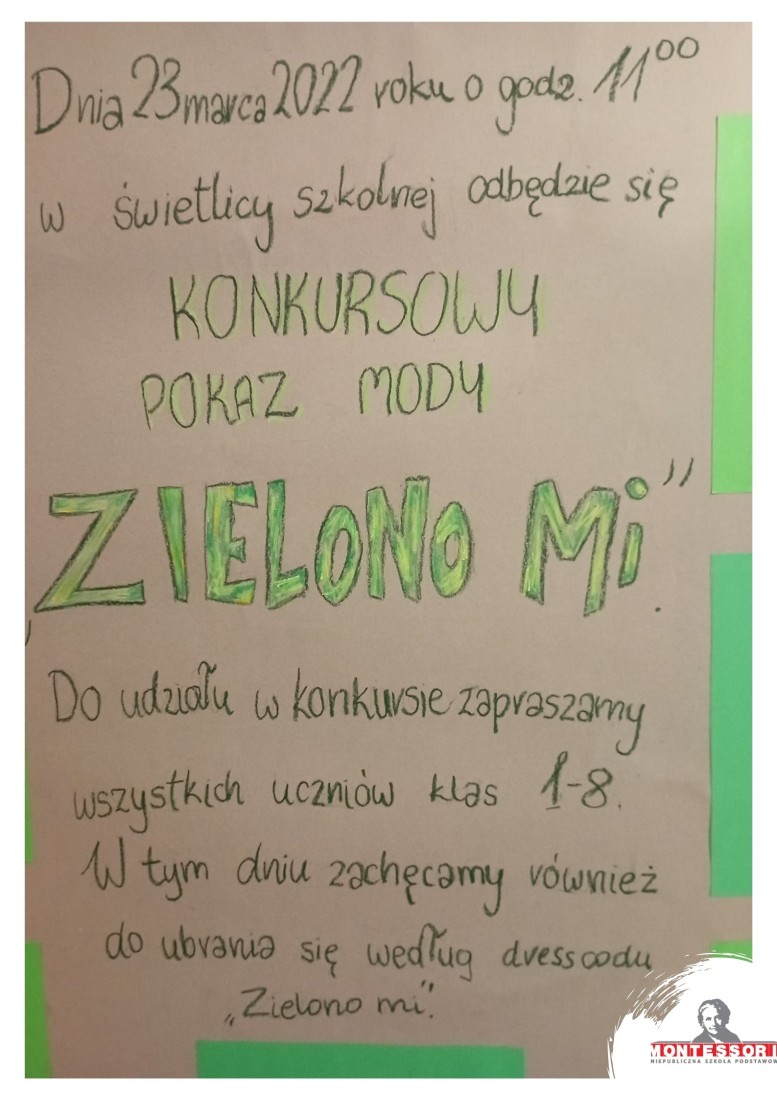 Dnia 23 marca 2022 roku o godz. 11⁰⁰
w świetlicy szkolnej odbędzie się
KONKURSOWY
POKAZ MODY
„ZIELONO Mi”.
Do udziału w konkursie zapraszamy
wszystkich uczniów klas 1-8.
W tym dniu zachęcamy również
do ubrania się według dresscodu
„Zielono mi”.
MONTESSORI
NIEPUBLICZNA SZKOŁA PODSTAWOW